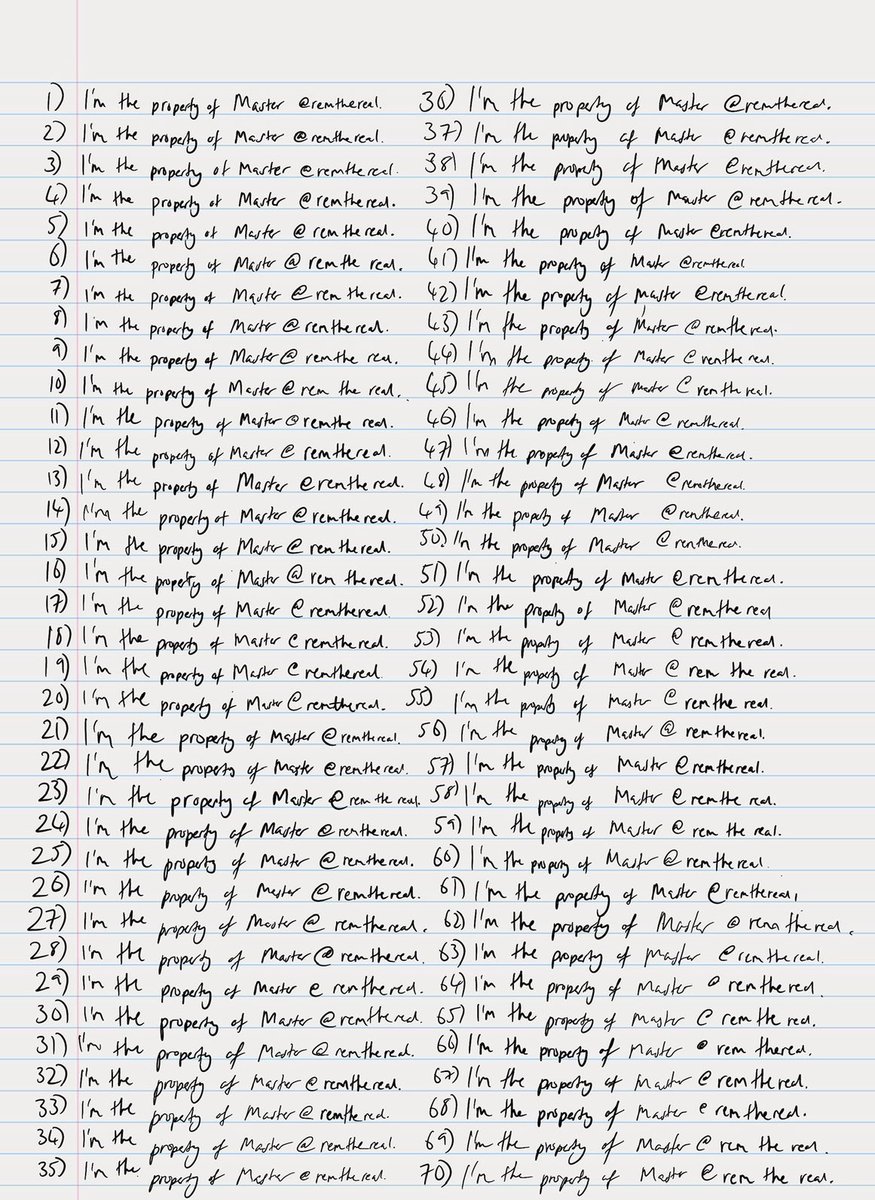 1) I'm the property of Master @remthereal.
2) I'm the property of Master @remthereal.
3) I'm the property of Master @remthereal.
4) I'm the property of Master @remthereal.
5) I'm the property of Master @remthereal.
6) I'm the property of Master @remthe real.
7) I'm the property of Master @rem the real.
8) I'm the property of Master @remthereal.
9) I'm the property of Master @remthe real.
10) I'm the property of Master @rem the real.
11) I'm the property of Master @remthe real.
12) I'm the property of Master @remthereal.
13) I'm the property of Master @remthereal.
14) I'm the property of Master @remthereal.
15) I'm the property of Master @remthereal.
16) I'm the property of Master @rem thereal.
17) I'm the property of Master @remthereal
18) I'm the property of Master @remthereal.
19) I'm the property of Master @remthereal
20) I'm the property of Master @remthereal.
21) I'm the property of Master @remthereal.
22) I'm the property of Master @remthereal.
23) I'm the property of Master @rem the real.
24) I'm the property of Master @remthereal.
25) I'm the property of Master @remthereal.
26) I'm the property of Master @remthereal.
27) I'm the property of Master @remthereal.
28) I'm the property of Master @remthereal.
29) I'm the property of Master @remthereal.
30) I'm the property of Master @remthereal.
31) I'm the property of Master @remthereal.
32) I'm the property of Master @remthereal.
33) I'm the property of Master @remthereal.
34) I'm the property of Master @remthereal.
35) I'm the property of Master @remthereal.
36) I'm the property of Master @remthereal.
37) I'm the property of Master @remthereal.
38) I'm the property of Master @remthereal.
39) I'm the property of Master @remthereal.
40) I'm the property of Master @remthereal.
41) I'm the property of Master @remthereal
42) I'm the property of Master @remthereal.
43) I'm the property of Master @remthereal.
44) I'm the property of Master @remthe real.
45) I'm the property of Master @remthe real.
46) I'm the property of Master @remthereal.
47) I'm the property of Master @remthereal.
48) I'm the property of Master @remthereal.
49) I'm the property of Master @remthereal.
50) I'm the property of Master @remthereal.
51) I'm the property of Master @remthereal.
52) I'm the property of Master @remthe real
53) I'm the property of Master @remthe real.
54) I'm the property of Master @rem the real.
55) I'm the property of Master @remthe real.
56) I'm the property of Master @remthereal.
57) I'm the property of Master @remthereal.
58) I'm the property of Master @remthe real.
59) I'm the property of Master @rem the real.
60) I'm the property of Master @remthereal.
61) I'm the property of Master @remthereal.
62) I'm the property of Master @remthereal.
63) I'm the property of Master @remthereal.
64) I'm the property of Master @remthereal.
65) I'm the property of Master @remthe real.
66) I'm the property of Master @rem thereal.
67) I'm the property of Master @remthereal.
68) I'm the property of Master @remthereal.
69) I'm the property of Master @rem the real.
70) I'm the property of Master @rem the real.